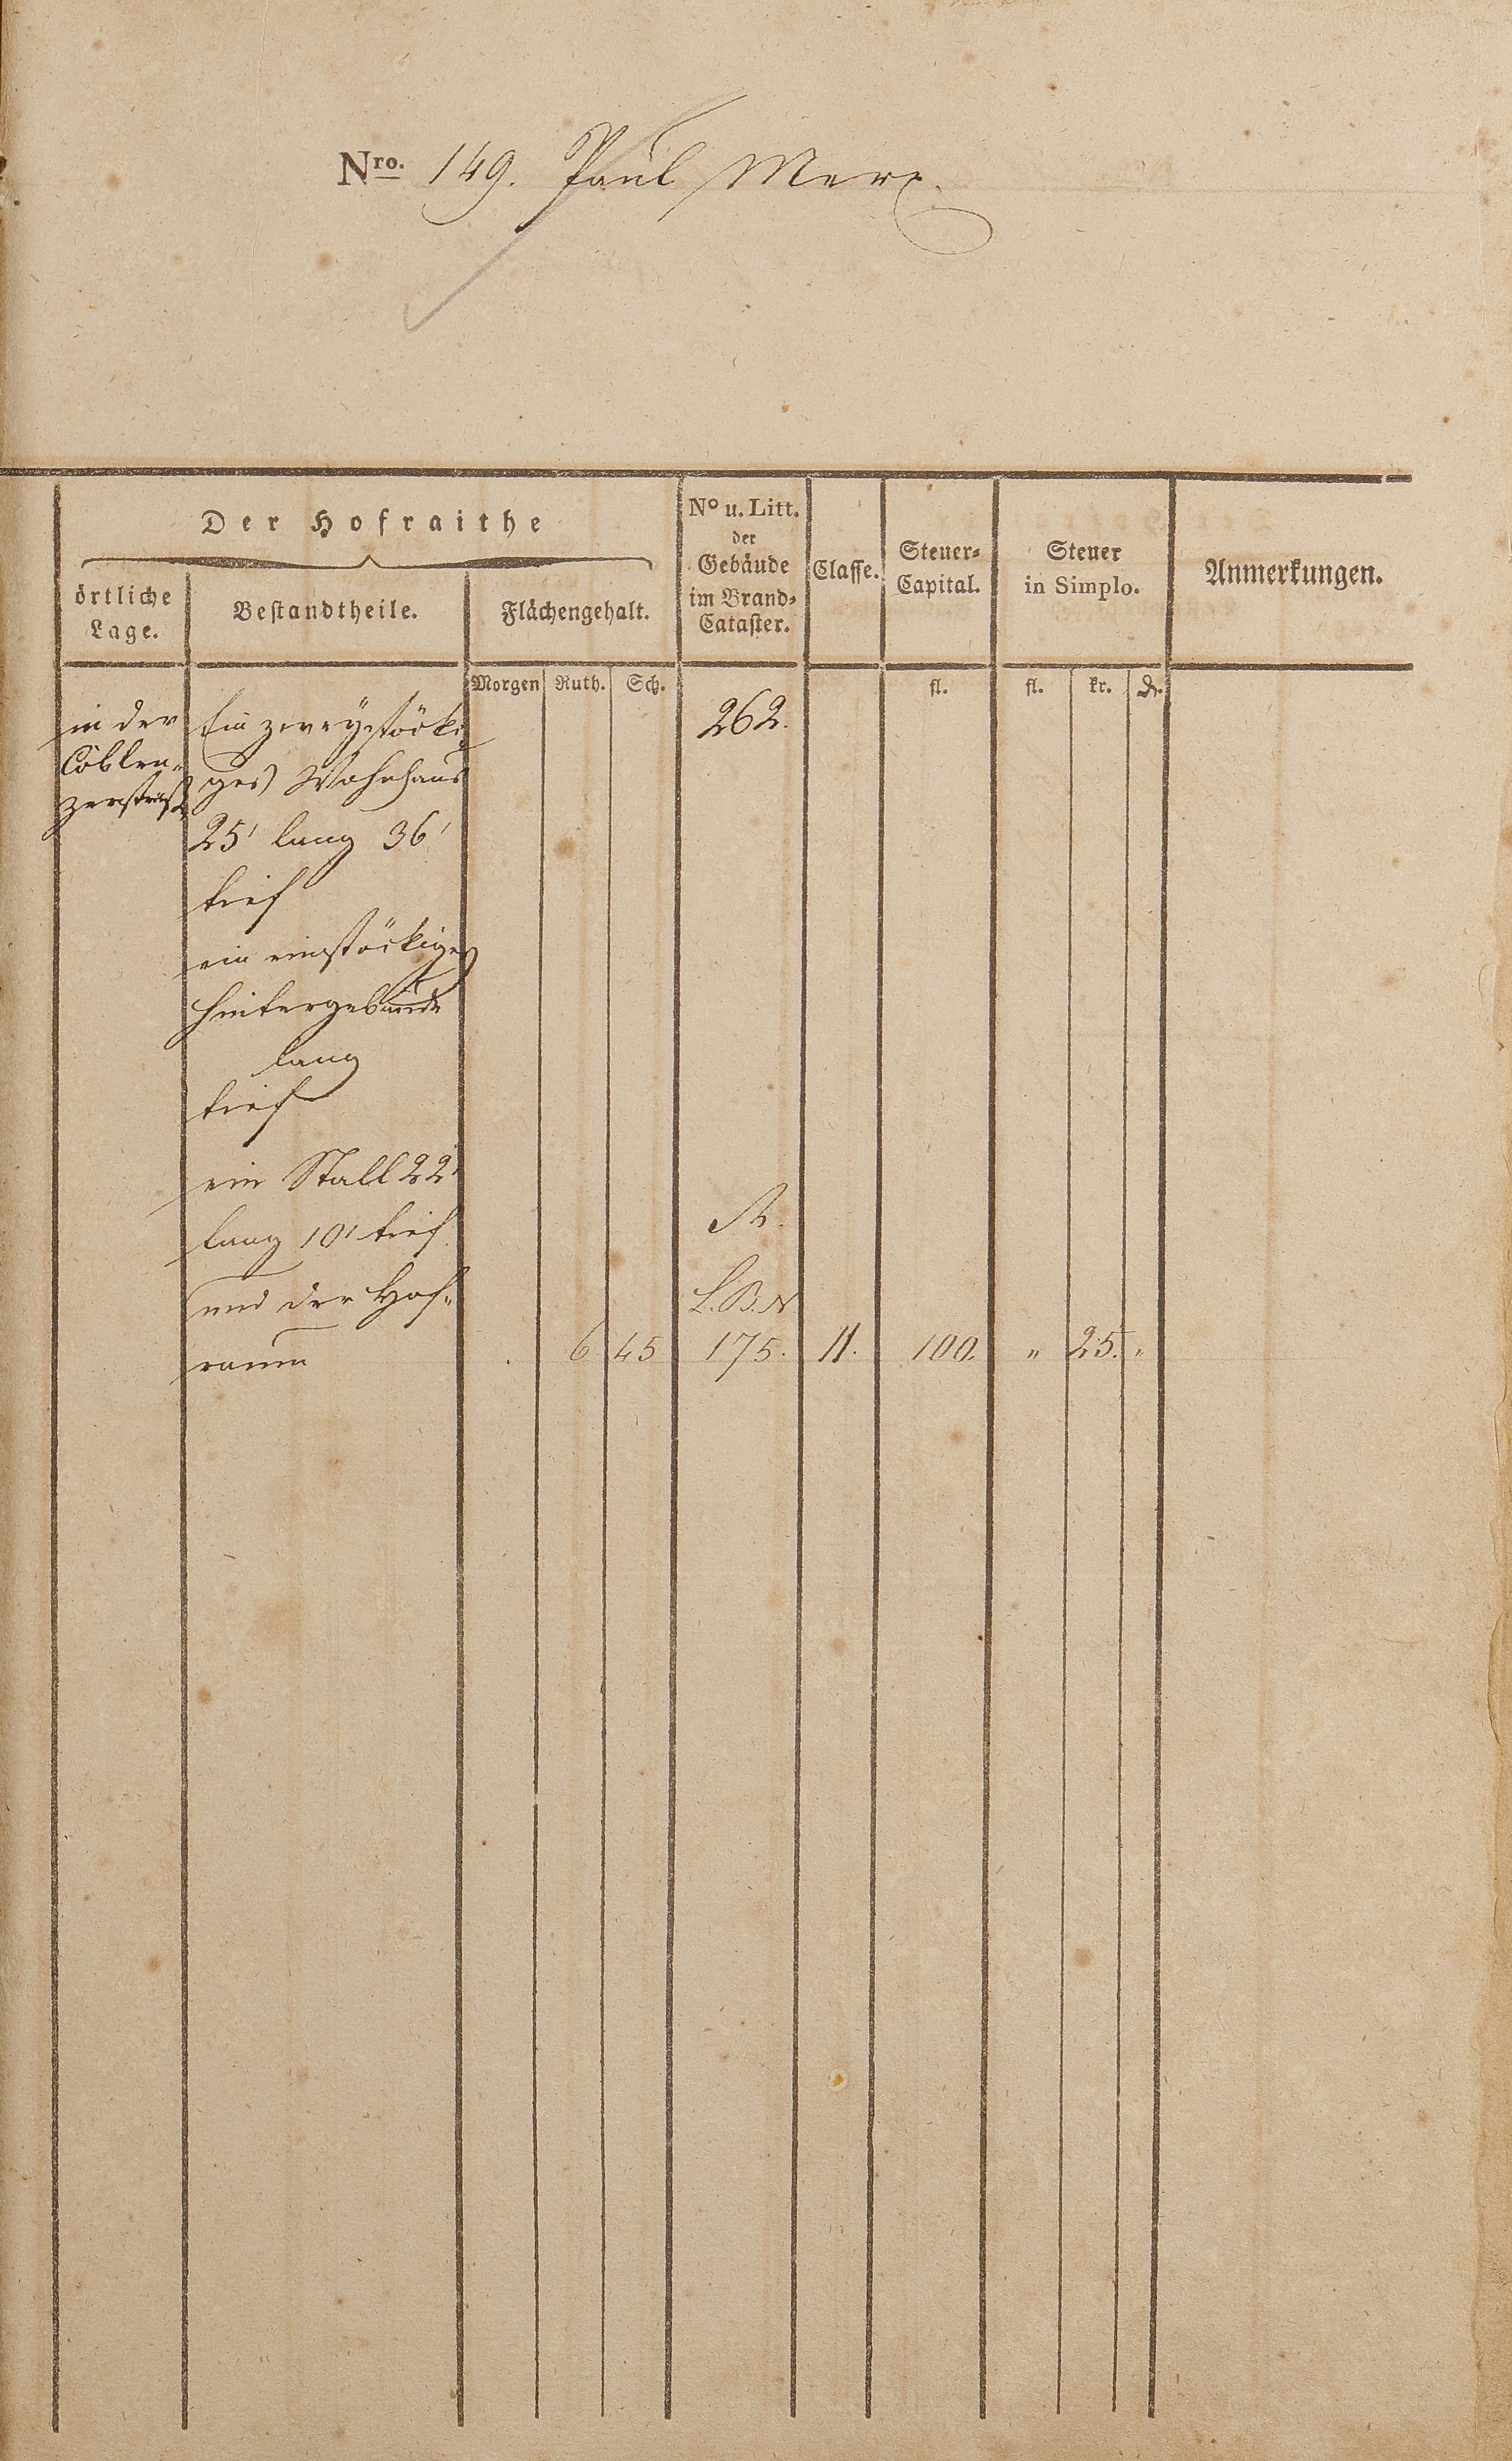 Nro. 149. Paul Merx.
Der Hofraithe
örtliche Lage.
Bestandtheile.
Flächengehalt.
No u. Litt. der Gebäude im Brand-Cataster.
Classe.
Steuer-Capital.
Steuer in Simplo.
Anmerkungen.
Morgen Ruth. Sch. fl. fl. kr. ₰.
in der Ein zweystöcki 262.
Coblen- ges Wohnhaus
zerstraß
25' lang 36'
tief
ein einstöckiges
Hintergebäude
lang
tief
ein Stall 22'
lang 10' tief
und der Hof-
L.B.N.
raum . 6 45 175. II. 100. " 25. "